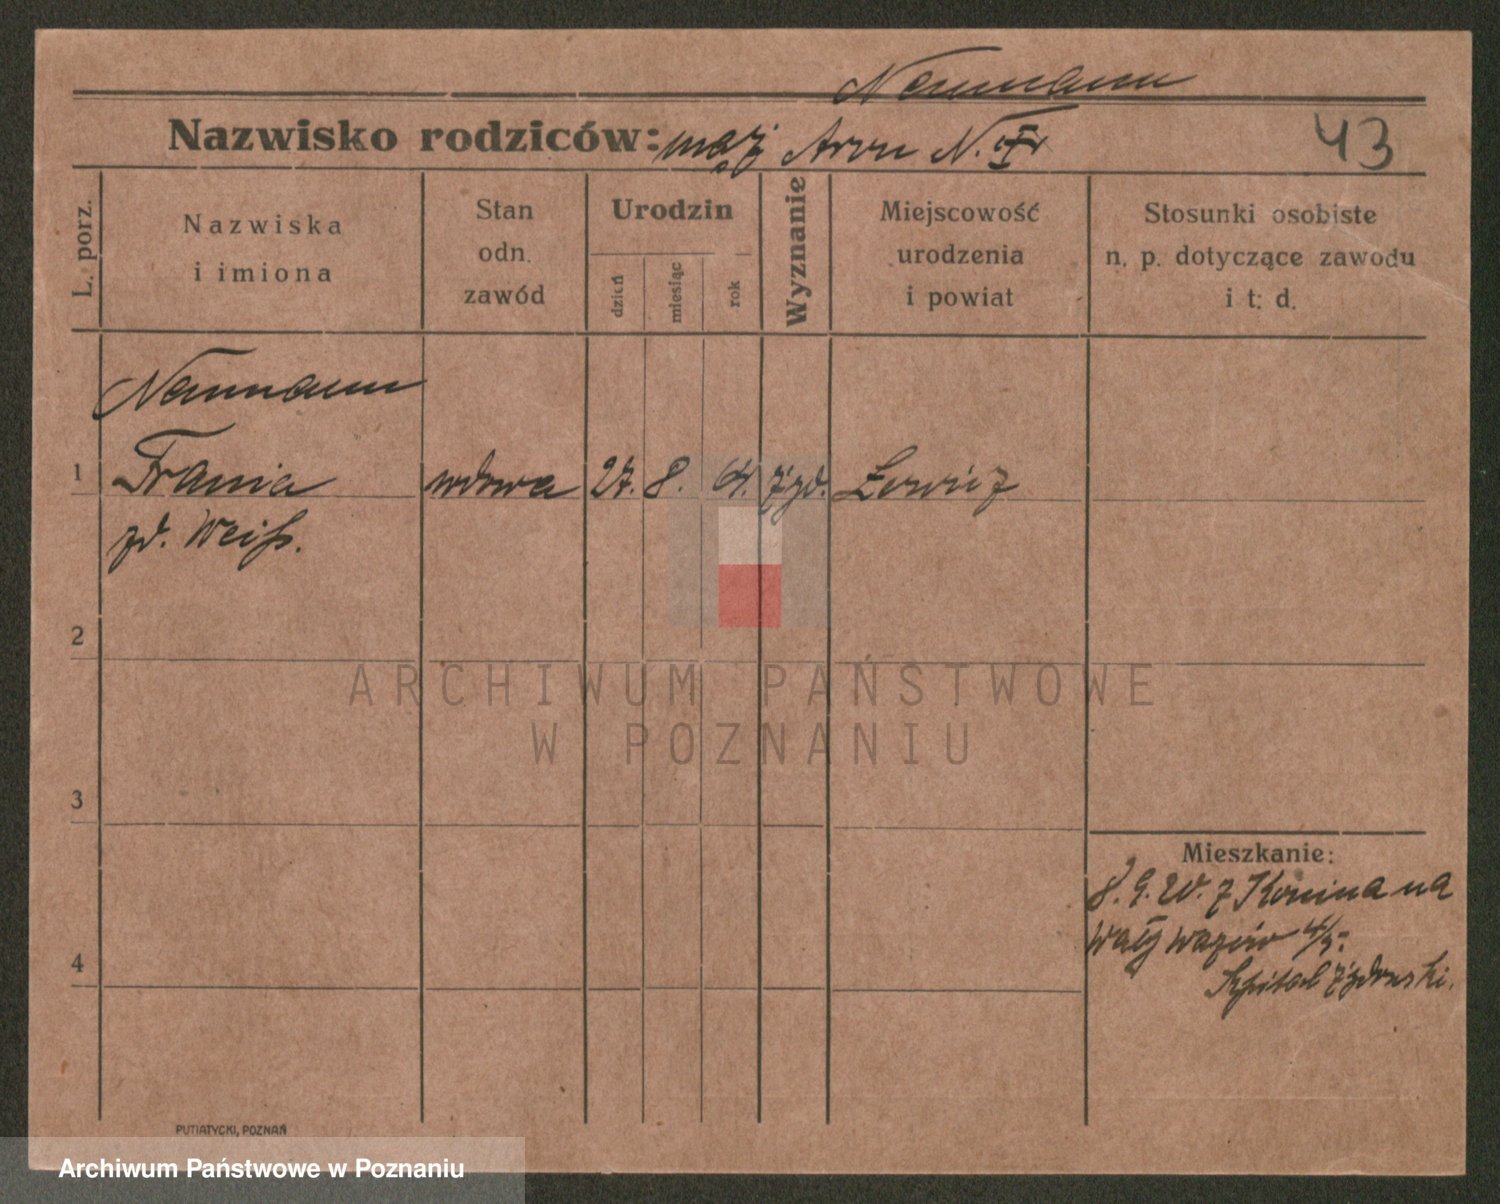 Neumann
Nazwisko rodziców: mąż N.
43
L. porz.
Nazwiska
i imiona
Stan
odn.
zawód
Urodzin
dzień
miesiąc
rok
Wyznanie
Miejscowość
urodzenia
i powiat
Stosunki osobiste
n. p. dotyczące zawodu
i t. d.
Neumann
1 Frania wdowa 27. 8. żyd.
zd. Weiß.
2
ARCHIWUM PAŃSTWOWE
W POZNANIU
3
Mieszkanie:
8.9. z Konina na
Wały
4
Szpital żydowski.
PUTIATYCKI, POZNAŃ
Archiwum Państwowe w Poznaniu